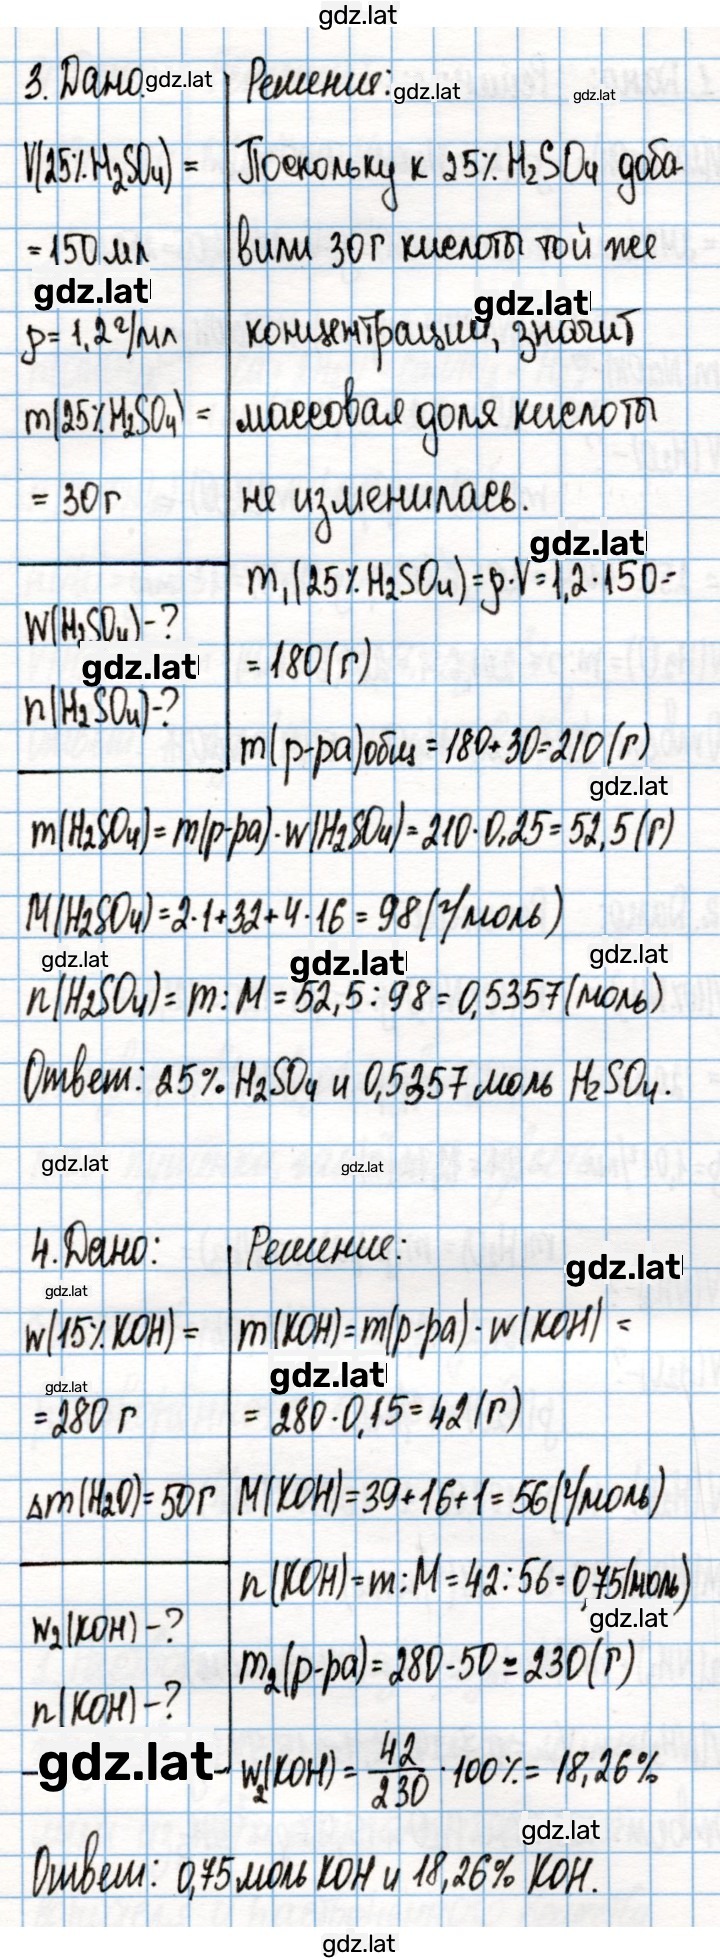 gdz.lat
3. Дано: gdz.lat Решение: gdz.lat gdz.lat
V(25% H₂SO₄) = Поскольку к 25% H₂SO₄ доба-
= 150 мл вили 30 г кислоты той же
gdz.lat gdz.lat
ρ = 1,2 г/мл концентрации, значит
m(25% H₂SO₄) = массовая доля кислоты
= 30 г не изменилась.
gdz.lat
m₁(25% H₂SO₄) = ρ·V = 1,2·150 =
W(H₂SO₄) - ?
gdz.lat = 180 (г)
n(H₂SO₄) - ?
m(р-ра)общ = 180 + 30 = 210 (г)
gdz.lat
m(H₂SO₄) = m(р-ра) · w(H₂SO₄) = 210 · 0,25 = 52,5 (г)
M(H₂SO₄) = 2·1 + 32 + 4·16 = 98 (г/моль)
gdz.lat gdz.lat gdz.lat
n(H₂SO₄) = m : M = 52,5 : 98 = 0,5357 (моль)
Ответ: 25% H₂SO₄ и 0,5357 моль H₂SO₄.
gdz.lat gdz.lat
4. Дано: Решение:
gdz.lat gdz.lat
w(15% KOH) = m(KOH) = m(р-ра) · w(KOH) =
gdz.lat gdz.lat
= 280 г = 280 · 0,15 = 42 (г)
Δm(H₂O) = 50 г M(KOH) = 39 + 16 + 1 = 56 (г/моль)
n(KOH) = m : M = 42 : 56 = 0,75 (моль)
gdz.lat
w₂(KOH) - ?
m₂(р-ра) = 280 - 50 = 230 (г)
n(KOH) - ?
gdz.lat
w₂(KOH) = 42/230 · 100% = 18,26%
gdz.lat
Ответ: 0,75 моль KOH и 18,26% KOH.
gdz.lat